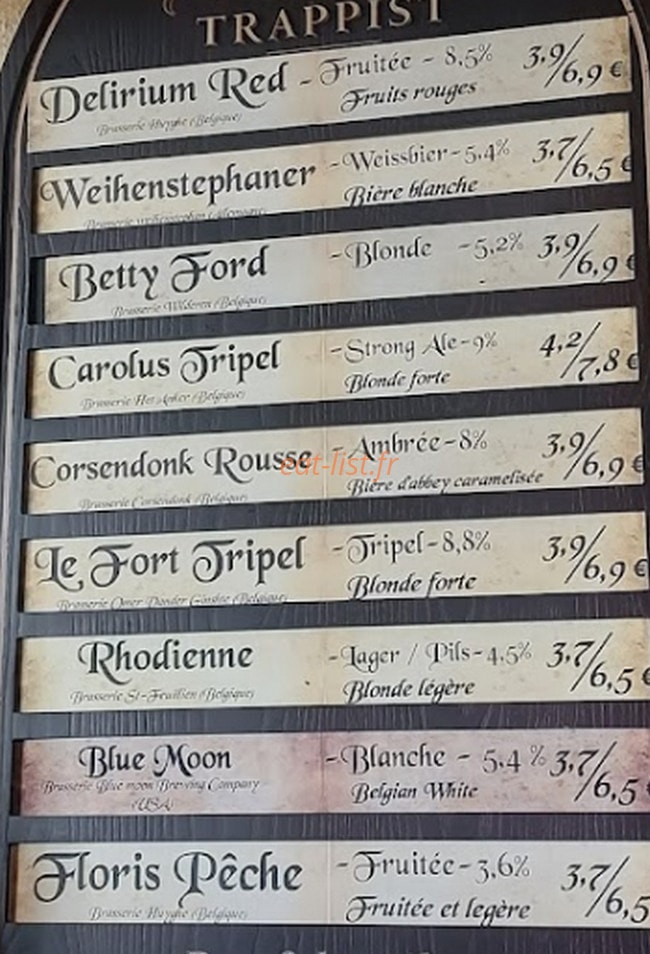 TRAPPIST
Delirium Red - Fruitée - 8,5% 3,9/6,9 €
Brasserie Huyghe (Belgique) Fruits rouges
Weihenstephaner - Weissbier - 5,4% 3,7/6,5 €
Bière blanche
Betty Ford - Blonde - 5,2% 3,9/6,9 €
Brasserie Wilderen (Belgique)
Carolus Tripel - Strong Ale - 9% 4,2/7,8 €
Brasserie Het Anker (Belgique) Blonde forte
Corsendonk Rousse - Ambrée - 8% 3,9/6,9 €
Brasserie Corsendonk (Belgique) Bière d'abbey caramelisée
eat-list.fr
Le Fort Tripel - Tripel - 8,8% 3,9/6,9 €
Brasserie Omer Vander Ginste (Belgique) Blonde forte
Rhodienne - Lager / Pils - 4,5% 3,7/6,5 €
Brasserie St-Feuillien (Belgique) Blonde légère
Blue Moon - Blanche - 5,4 % 3,7/6,5
Brasserie Blue moon Brewing Company Belgian White
(USA)
Floris Pêche - Fruitée - 3,6% 3,7/6,5
Brasserie Huyghe (Belgique) Fruitée et legère